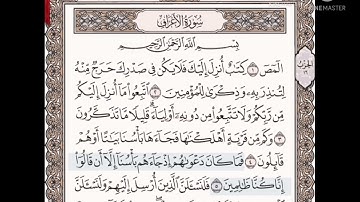 سُورَةُ الأَعۡرَافِ
بِسۡمِ ٱللَّهِ ٱلرَّحۡمَٰنِ ٱلرَّحِيمِ
الٓمٓصٓ ١ كِتَٰبٌ أُنزِلَ إِلَيۡكَ فَلَا يَكُن فِي صَدۡرِكَ حَرَجٞ مِّنۡهُ
لِتُنذِرَ بِهِۦ وَذِكۡرَىٰ لِلۡمُؤۡمِنِينَ ٢ ٱتَّبِعُواْ مَآ أُنزِلَ إِلَيۡكُم
مِّن رَّبِّكُمۡ وَلَا تَتَّبِعُواْ مِن دُونِهِۦٓ أَوۡلِيَآءَۗ قَلِيلٗا مَّا تَذَكَّرُونَ
٣ وَكَم مِّن قَرۡيَةٍ أَهۡلَكۡنَٰهَا فَجَآءَهَا بَأۡسُنَا بَيَٰتًا أَوۡ هُمۡ
قَآئِلُونَ ٤ فَمَا كَانَ دَعۡوَىٰهُمۡ إِذۡ جَآءَهُم بَأۡسُنَآ إِلَّآ أَن قَالُوٓاْ
إِنَّا كُنَّا ظَٰلِمِينَ ٥ فَلَنَسۡـَٔلَنَّ ٱلَّذِينَ أُرۡسِلَ إِلَيۡهِمۡ وَلَنَسۡـَٔلَنَّ
الحزب
١٦
Made with KINEMASTER